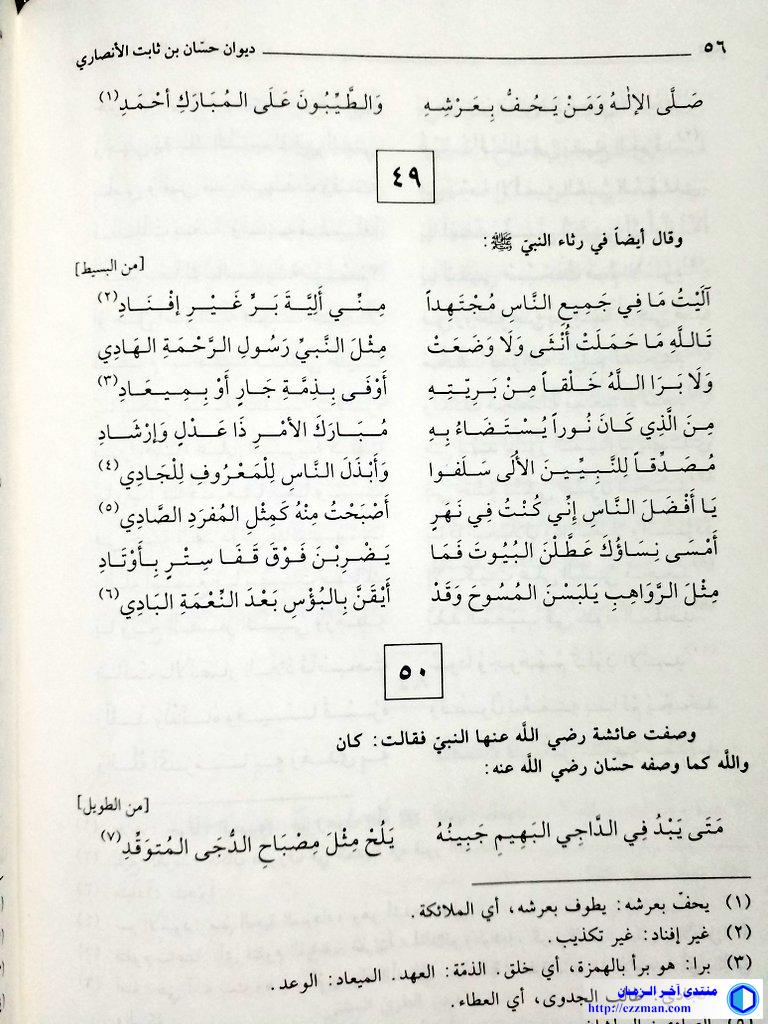 ٥٦ ديوان حسّان بن ثابت الأنصاري
صَلَّى الإلٰهُ وَمَنْ يَحُفُّ بِعَرْشِهِ وَالطَّيِّبُونَ عَلَى المُبَارَكِ أحْمَدِ(١)
٤٩
وقال أيضاً في رثاء النبيّ ﷺ:
[من البسيط]
آلَيْتُ مَا فِي جَمِيعِ النَّاسِ مُجْتَهِداً مِنِّي أَلِيَّةَ بَرٍّ غَيْرِ إفْنَادِ(٢)
تَاللَّهِ مَا حَمَلَتْ أُنْثَى وَلَا وَضَعَتْ مِثْلَ النَّبِيِّ رَسُولِ الرَّحْمَةِ الهَادِي
وَلَا بَرَا اللَّهُ خَلْقاً مِنْ بَرِيّتِهِ أَوْفَى بِذِمَّةِ جَارٍ أَوْ بِمِيعَادِ(٣)
مِنَ الَّذِي كَانَ نُوراً يُسْتَضَاءُ بِهِ مُبَارَكَ الأمْرِ ذَا عَدْلٍ وَإرْشَادِ
مُصَدِّقاً لِلنَّبِيِّينَ الأُلَى سَلَفوا وَأَبْذَلَ النَّاسِ لِلْمَعْرُوفِ لِلْجَادِي(٤)
يَا أَفْضَلَ النَّاسِ إنِّي كُنْتُ فِي نَهَرٍ أَصْبَحْتُ مِنْهُ كَمِثْلِ المُفرَدِ الصَّادِي(٥)
أَمْسَى نِسَاؤُكَ عَطَّلْنَ البُيُوتَ فَمَا يَضْرِبْنَ فَوْقَ قَفَا سِتْرٍ بِأَوْتَادِ
مِثْلَ الرَّوَاهِبِ يَلبَسْنَ المُسُوحَ وَقَدْ أَيْقَنَّ بِالبُؤْسِ بَعْدَ النِّعْمَةِ البَادِي(٦)
٥٠
وصفت عائشة رضي اللَّه عنها النبيّ فقالت: كان
واللَّه كما وصفه حسّان رضي اللَّه عنه:
[من الطويل]
مَتَى يَبْدُ فِي الدَّاجِي البَهِيمِ جَبِينُهُ يَلُحْ مِثْلَ مِصْبَاحِ الدُّجَى المُتوَقِّدِ(٧)
(١) يحفّ بعرشه: يطوف بعرشه، أي الملائكة.
(٢) غير إفناد: غير تكذيب.
(٣) برا: هو برأ بالهمزة، أي خلق. الذمّة: العهد. الميعاد: الوعد.
طالب الجدوى، أي العطاء.
منتدى آخر الزمان
http://ezzman.com